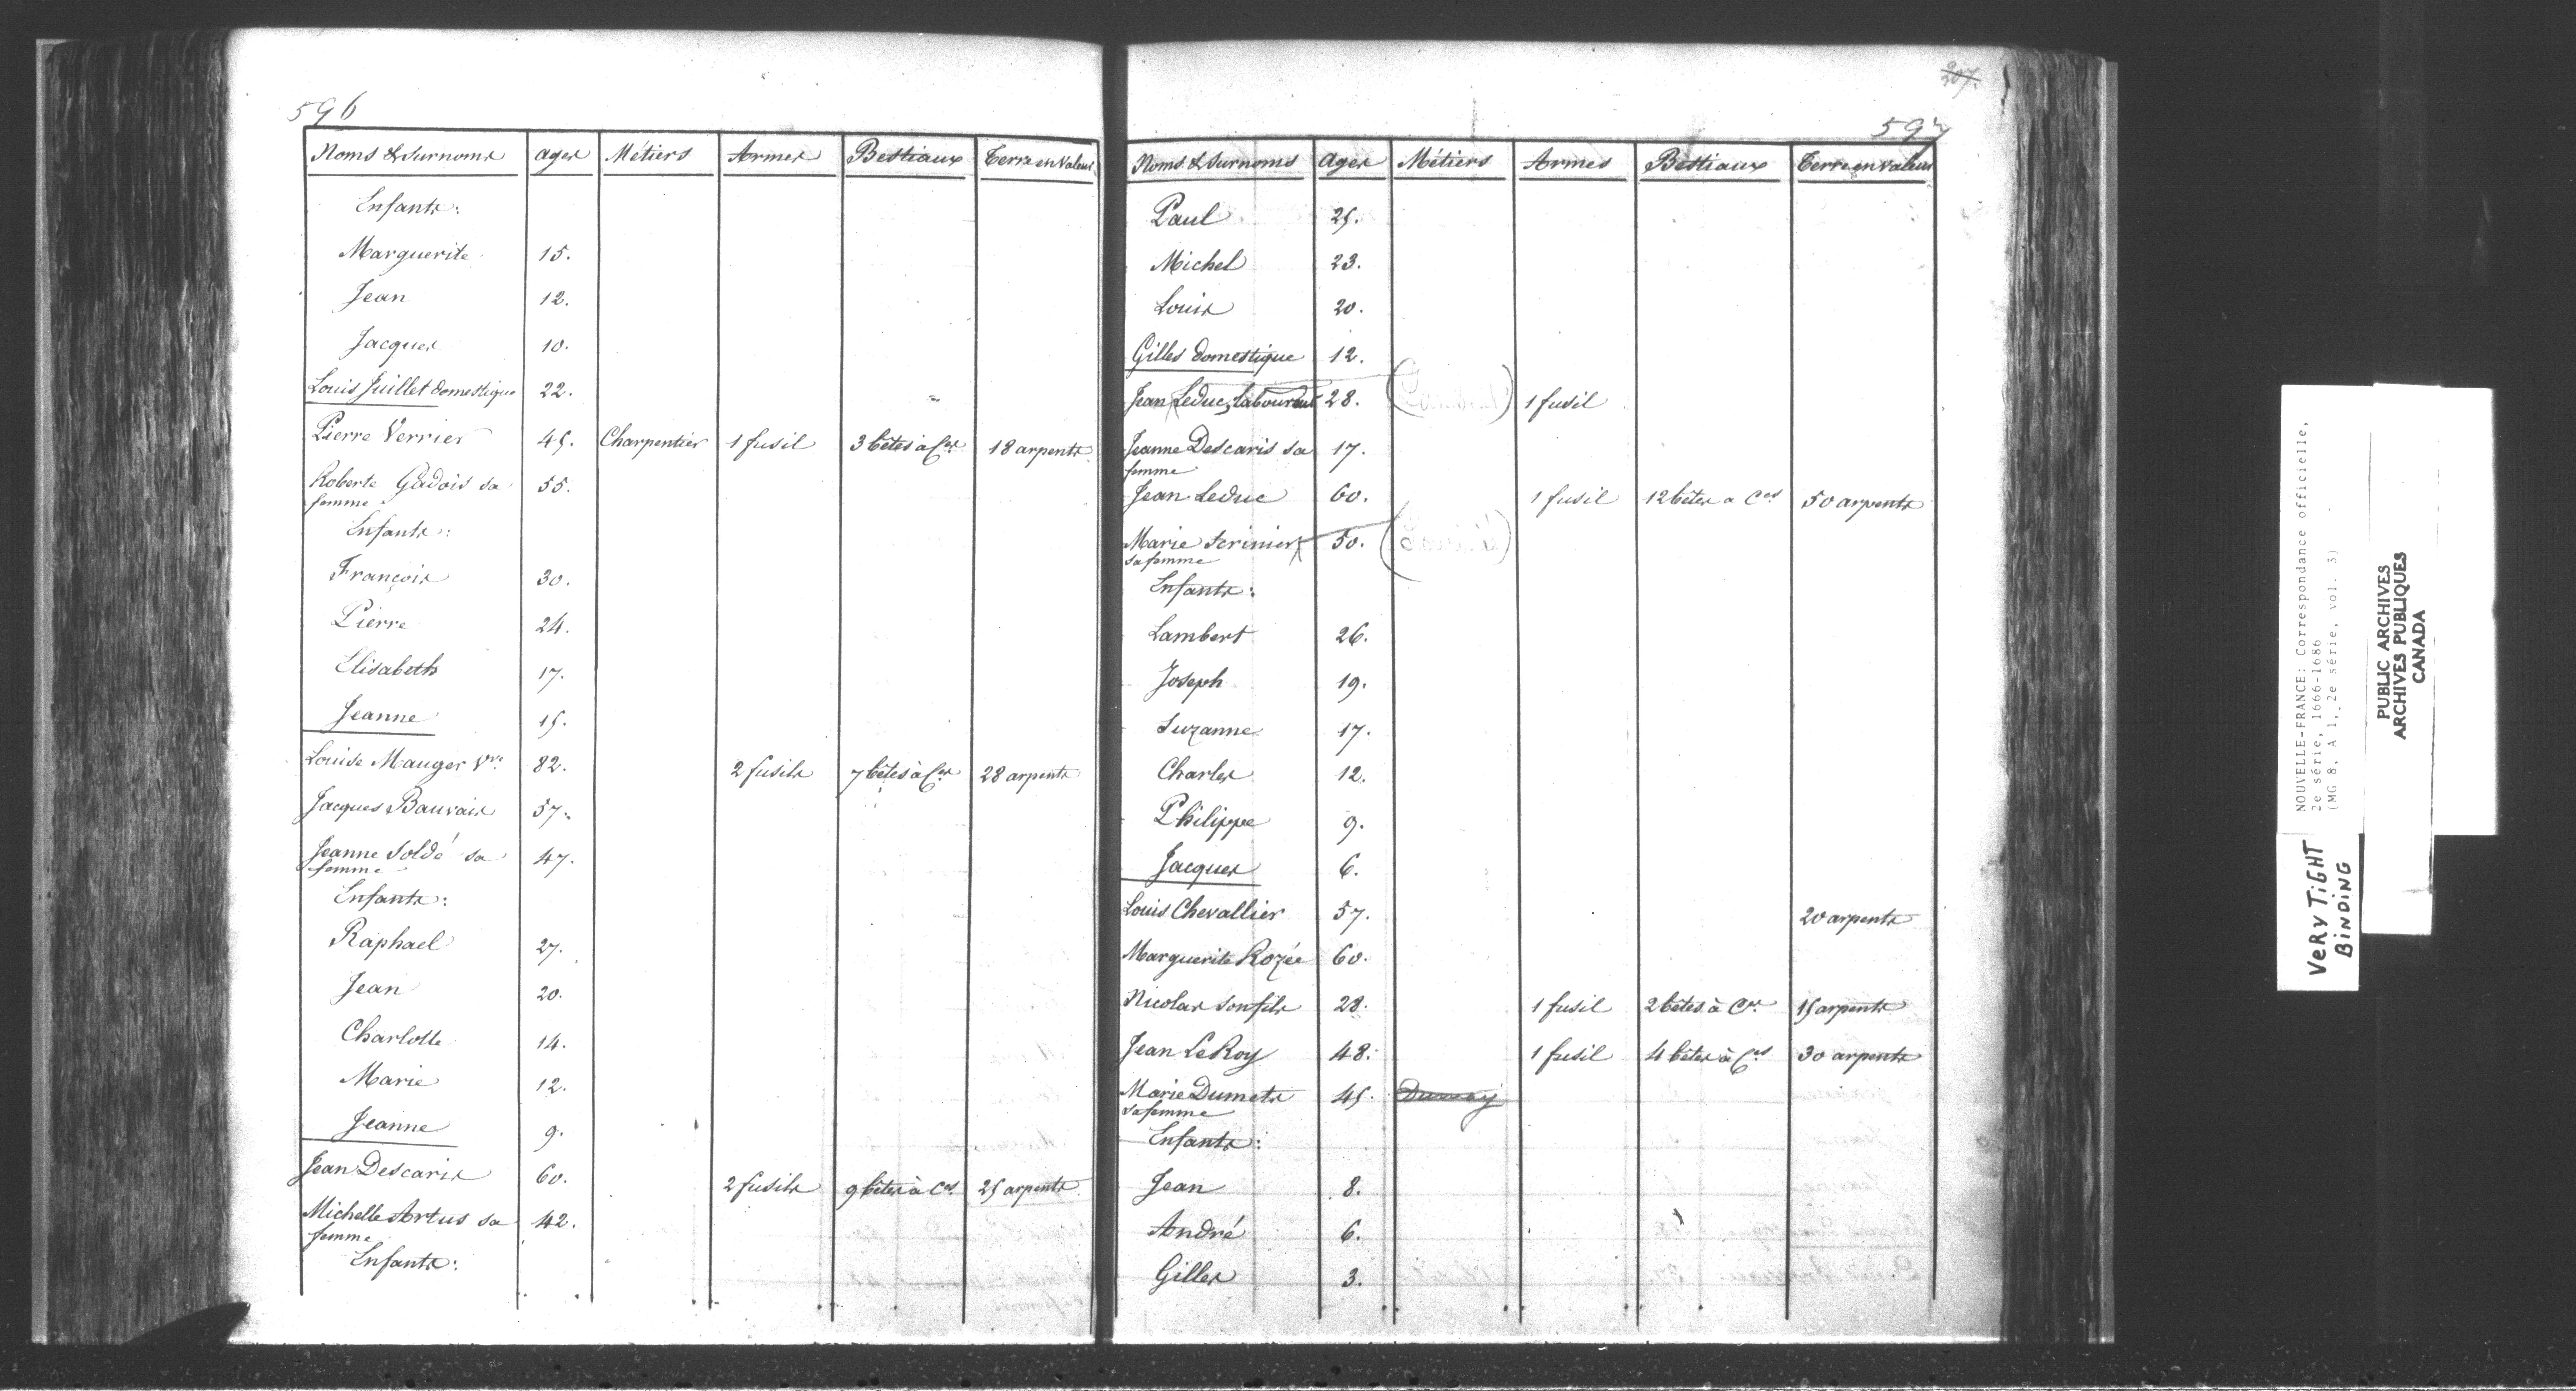 596
Noms & Surnoms Ages Métiers Armes Bestiaux Terre en Valeur
Enfants:
Marguerite 15.
Jean 12.
Jacques 10.
Louis Juillet domestique 22.
Pierre Verrier 45. Charpentier 1 fusil 3 bêtes à Ces 18 arpents
Roberte Gadois sa 55.
femme
Enfants:
François 30.
Pierre 24.
Elisabeth 17.
Jeanne 15.
Louise Mauger Vve 82. 2 fusils 7 bêtes à Ces 28 arpents
Jacques Bauvais 57.
Jeanne Soldé sa 47.
femme
Enfants:
Raphael 27.
Jean 20.
Charlotte 14.
Marie 12.
Jeanne 9.
Jean Descaris 60. 2 fusils 9 bêtes à Ces 25 arpents
Michelle Artus sa 42.
femme
Enfants:
207.
597
Noms & Surnoms Ages Métiers Armes Bestiaux Terre en Valeur
Paul 25.
Michel 23.
Louis 20.
Gilles domestique 12.
Jean Leduc, laboureur 28. 1 fusil
Jeanne Descaris sa 17.
femme
Jean Leduc 60. 1 fusil 12 bêtes a Ces 50 arpents
Marie Scrinier 50.
sa femme
Enfants:
Lambert 26.
Joseph 19.
Suzanne 17.
Charles 12.
Philippe 9.
Jacques 6.
Louis Chevallier 57. 20 arpents
Marguerite Rozée 60.
Nicolas son fils 28. 1 fusil 2 bêtes à Ces 15 arpents
Jean LeRoy 48. 1 fusil 4 bêtes à Ces 30 arpents
Marie Dumets 45. Dumay
sa femme
Enfants:
Jean 8.
André 6.
Gilles 3.
NOUVELLE-FRANCE: Correspondance officielle,
2e série, 1666-1686
(MG 8, A 1, 2e série, vol. 3)
PUBLIC ARCHIVES
ARCHIVES PUBLIQUES
CANADA
VERY TIGHT
BINDING